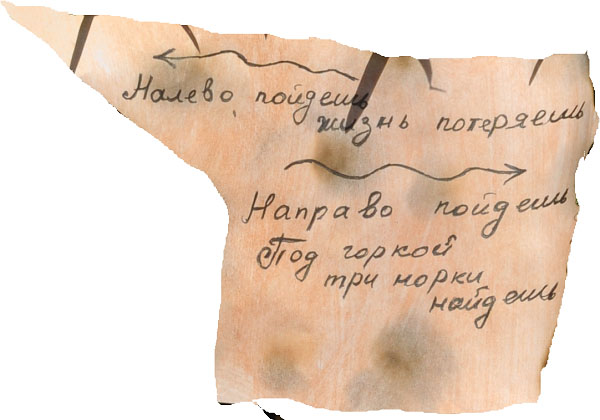 Налево пойдешь
жизнь потеряешь
Направо пойдешь
Под горкой
три норки
найдешь